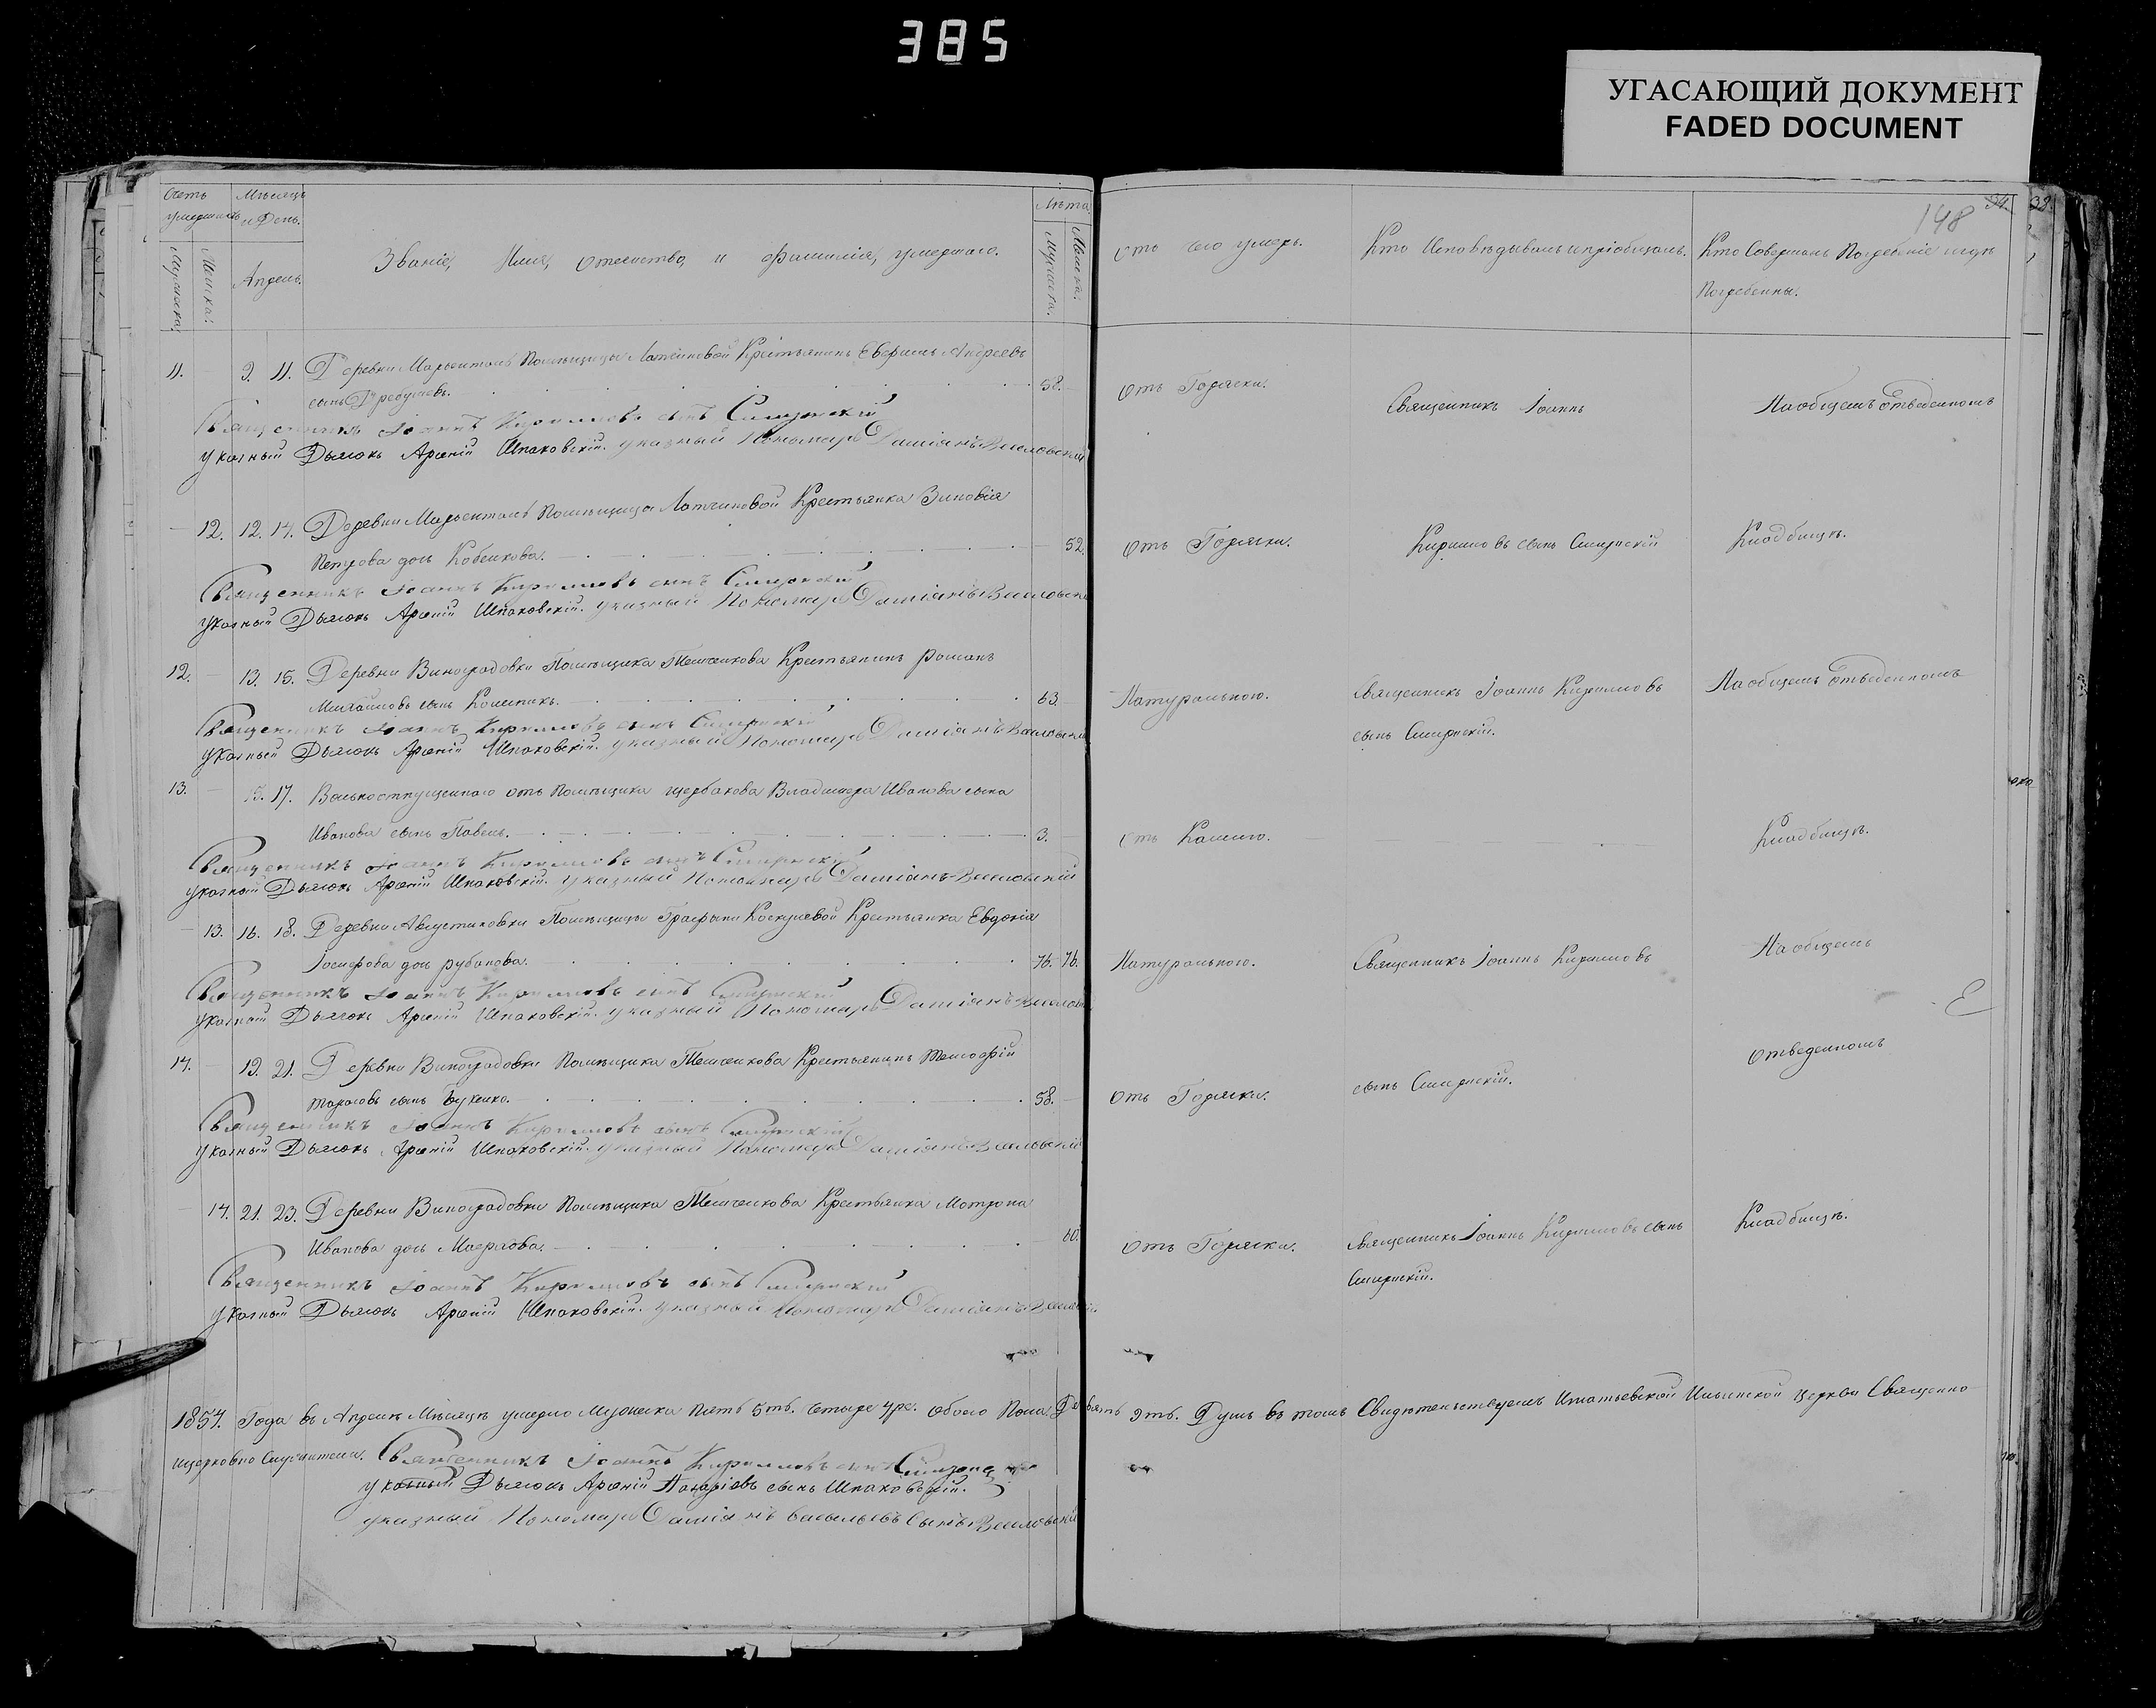 385
УГАСАЮЩИЙ ДОКУМЕНТ
FADED DOCUMENT
148
34.
38.
Счетъ умершихъ
Мѣсяцъ и День.
Апрель.
Мужеска.
Женска.
Званіе, Имя, отечество, и фамилія, умершаго.
Лѣта
Мужеска.
Женска.
отъ чего умеръ.
Кто Исповѣдывалъ и пріобщалъ.
Кто Совершалъ Погребеніе и гдѣ
Погребенны.
11. 9. 11. Деревни Мариенталь Помѣщицы Крестьянинъ Андреевъ
сынъ 58.
отъ Горячки.
Священникъ Іоаннъ
На общемъ отведенномъ
Священникъ Іоаннъ Кирилловъ сынъ Смиренскій
указный Дьячокъ Арсеній Шпаковскій. указный Пономарь Даміанъ Веселовскій
12. 12. 14. Деревни Мариенталь Помѣщицы Крестьянка Зиновія
Петрова дочь Кобелкова. 52.
отъ Горячки.
Кирилловъ сынъ Смиренскій
Кладбищѣ.
Священникъ Іоаннъ Кирилловъ сынъ Смиренскій
Указный Дьячокъ Арсеній Шпаковскій. указный Пономарь Даміанъ
12. 13. 15. Деревни Виноградовки Помѣщика Крестьянинъ Романъ
Михайловъ сынъ 63.
Натуральною.
Священникъ Іоаннъ Кирилловъ
сынъ Смиренскій.
На общемъ отведенномъ
Священникъ Іоаннъ Кирилловъ сынъ Смиренскій
Указный Дьячокъ Арсеній Шпаковскій. указный Пономарь Даміанъ
13. 15. 17. Вольноотпущеннаго отъ Помѣщика Щербакова Владимера Иванова сына
Иванова сынъ Павелъ. 3.
отъ Кашлю.
Кладбищѣ.
Священникъ Іоаннъ Кирилловъ сынъ Смиренскій
указный Дьячокъ Арсеній Шпаковскій. указный Пономарь Даміанъ Веселовскій
13. 16. 18. Деревни Августиновки Помѣщицы Графыни Крестьянка Евдокія
дочь Рубанова. 76. 76.
Натуральною.
Священникъ Іоаннъ Кирилловъ
На общемъ
Священникъ Іоаннъ Кирилловъ сынъ Смиренскій
Указный Дьячокъ Арсеній Шпаковскій. указный Пономарь Даміанъ
14. 19. 21. Деревни Виноградовки Помѣщика Крестьянинъ Тимофій
Тарасовъ сынъ 58.
отъ Горячки.
сынъ Смиренскій.
отведенномъ
Священникъ Іоаннъ Кирилловъ сынъ Смиренскій
указный Дьячокъ Арсеній Шпаковскій. указный Пономарь Даміанъ Веселовскій
14. 21. 23. Деревни Виноградовки Помѣщика Крестьянка Матрона
Иванова дочь 60.
отъ Горячки.
Священникъ Іоаннъ Кирилловъ сынъ
Смиренскій.
Кладбищѣ.
Священникъ Іоаннъ Кирилловъ сынъ Смиренскій
указный Дьячокъ Арсеній Шпаковскій. указный Пономарь Даміанъ
1854. Года въ Апрелѣ Мѣсяцѣ умерло Мужеска пять 5ть. четыре 4ре. обоего Пола Девять 9ть. Душъ въ томъ Свидѣтельствуемъ Игнатьевской Ильинской Церкви Священно
и церковно Служители. Священникъ Іоаннъ Кирилловъ сынъ
указный Дьячокъ Арсеній сынъ Шпаковскій.
указный Пономарь Даміанъ Васильевъ Сынъ Веселовскій